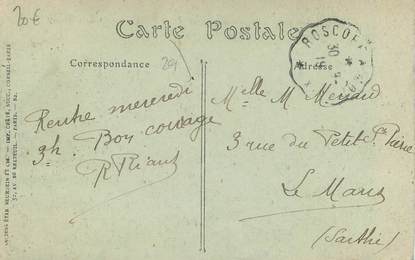 20€
Carte Postale
Correspondance
Adresse
204
ROSCOFF A
30
Rentre mercredi
3h. Bon courage
Melle M Menard
3 rue du Petit St Pierre
Le Mans
(Sarthe)